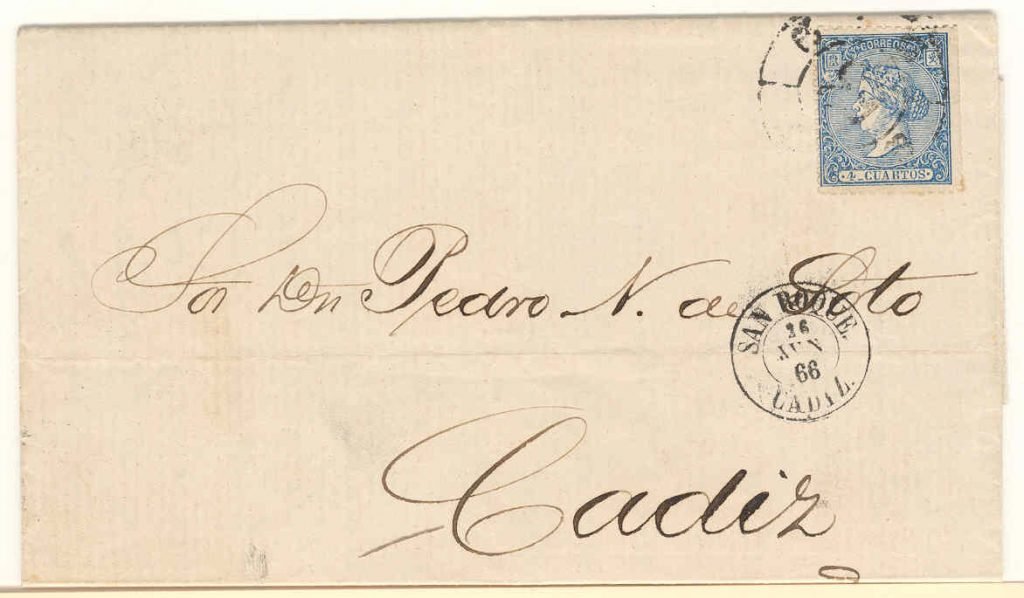 CORREOS
4 CUARTOS
Sor Dn Pedro N. de Soto
SAN ROQUE.
26
JUN
66
CADIZ.
Cadiz